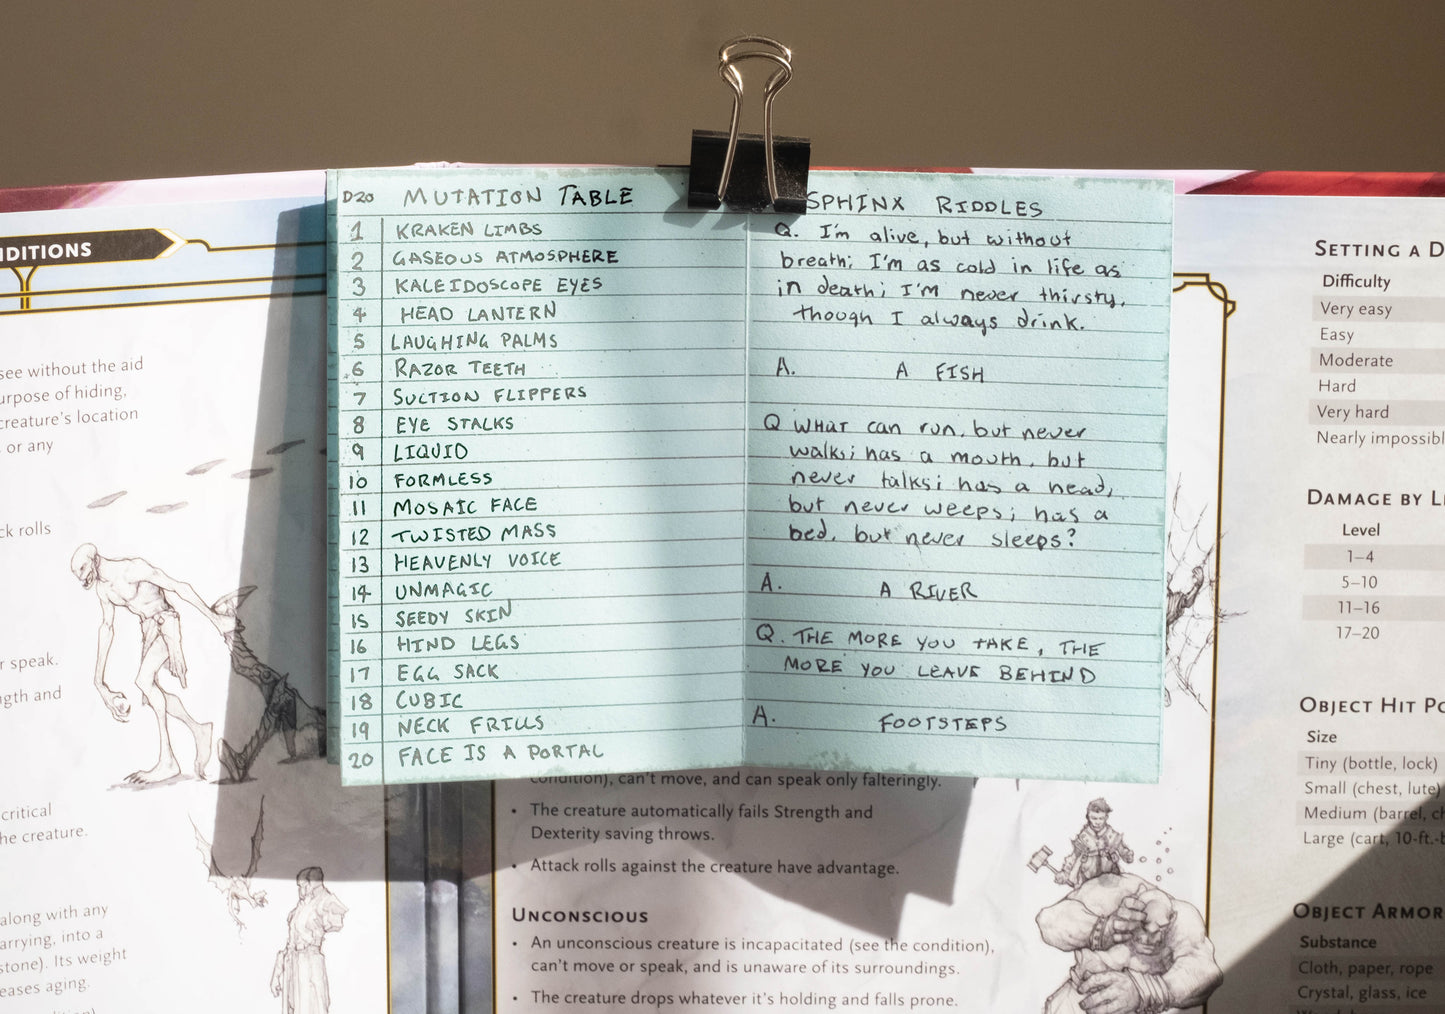 D20 MUTATION TABLE
1 KRAKEN LIMBS
2 GASEOUS ATMOSPHERE
3 KALEIDOSCOPE EYES
4 HEAD LANTERN
5 LAUGHING PALMS
6 RAZOR TEETH
7 SUCTION FLIPPERS
8 EYE STALKS
9 LIQUID
10 FORMLESS
11 MOSAIC FACE
12 TWISTED MASS
13 HEAVENLY VOICE
14 UNMAGIC
15 SEEDY SKIN
16 HIND LEGS
17 EGG SACK
18 CUBIC
19 NECK FRILLS
20 FACE IS A PORTAL
SPHINX RIDDLES
Q. I'm alive, but without
breath; I'm as cold in life as
in death; I'm never thirsty,
though I always drink.
A. A FISH
Q WHAT can run, but never
walks; has a mouth, but
never talks; has a head,
but never weeps; has a
bed, but never sleeps?
A. A RIVER
Q. THE MORE YOU TAKE, THE
MORE YOU LEAVE BEHIND
A. FOOTSTEPS
NDITIONS
see without the aid
urpose of hiding,
creature's location
or any
ck rolls
r speak.
gth and
critical
he creature.
along with any
arrying, into a
stone). Its weight
eases aging.
condition), can't move, and can speak only falteringly.
• The creature automatically fails Strength and
Dexterity saving throws.
• Attack rolls against the creature have advantage.
UNCONSCIOUS
• An unconscious creature is incapacitated (see the condition),
can't move or speak, and is unaware of its surroundings.
• The creature drops whatever it's holding and falls prone.
SETTING A D
Difficulty
Very easy
Easy
Moderate
Hard
Very hard
Nearly impossibl
DAMAGE BY L
Level
1–4
5–10
11–16
17–20
OBJECT HIT PO
Size
Tiny (bottle, lock)
Small (chest, lute)
Medium (barrel, ch
Large (cart, 10-ft.-b
OBJECT ARMOR
Substance
Cloth, paper, rope
Crystal, glass, ice